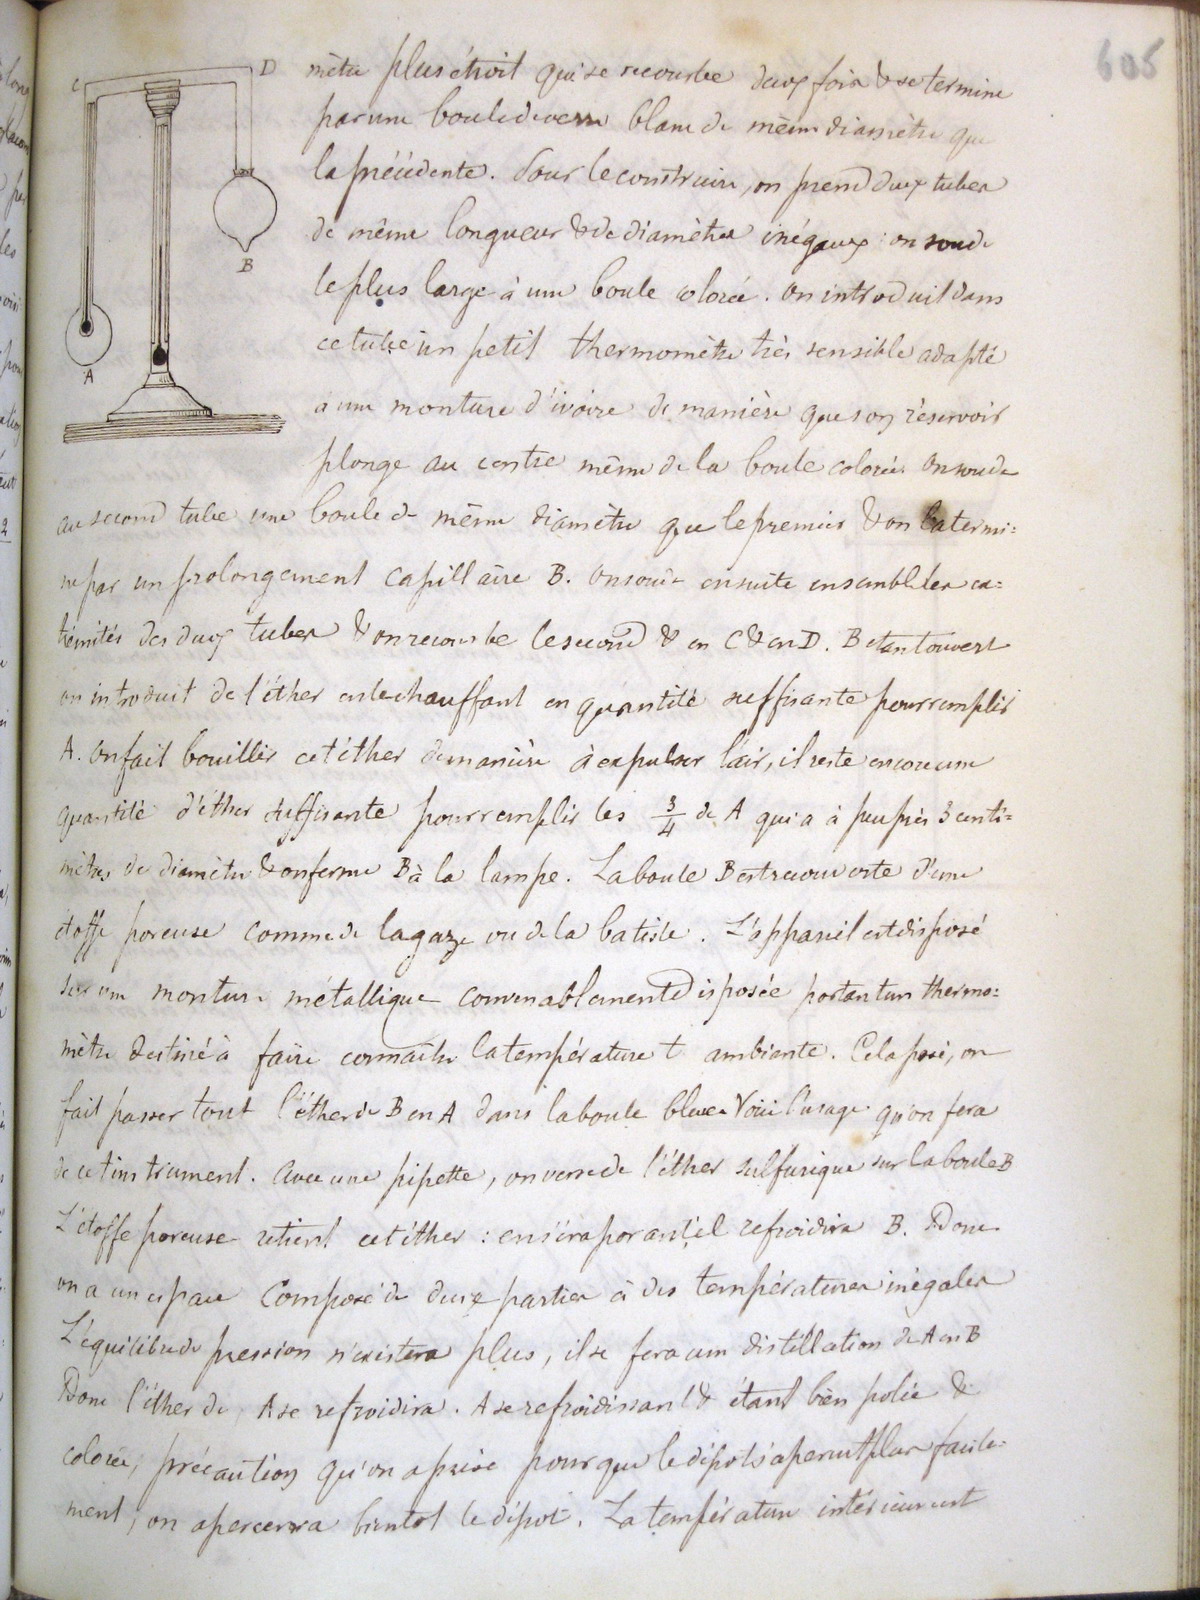 605
C D
mètre plus étroit qui se recourbe deux fois & se termine
par une boule de verre blanc de même diamètre que
la précédente. Pour le construire, on prend deux tubes
de même longueur & de diamètres inégaux : on soude
le plus large à une boule colorée. On introduit dans
ce tube un petit thermomètre très sensible adapté
à une monture d'ivoire de manière que son réservoir
plonge au centre même de la boule colorée. On soude
B
A
au second tube une boule de même diamètre que le premier & on la termi=
ne par un prolongement capillaire B. On soude ensuite ensemble les ex=
trémités des deux tubes & on recourbe le second & en C & en D. B étant ouvert
on introduit de l'éther en le chauffant en quantité suffisante pour remplir
A. On fait bouillir cet éther de manière à expulser l'air, il reste encore une
quantité d'éther suffisante pour remplir les 3/4 de A qui a à peu près 3 centi=
mètres de diamètre & on ferme B à la lampe. La boule B est recouverte d'une
étoffe poreuse comme de la gaze ou de la batiste. L'appareil est disposé
sur une monture métallique convenablement disposée portant un thermo=
mètre destiné à faire connaître la température t ambiante. Cela posé, on
fait passer tout l'éther de B en A dans la boule bleue. Voici l'usage qu'on fera
de cet instrument. Avec une pipette, on verse de l'éther sulfurique sur la boule B
L'étoffe poreuse retient cet éther : en s'évaporant il refroidira B. Donc
on a un espace composé de deux parties à des températures inégales
L'équilibre de pression n'existera plus, il se fera une distillation de A en B
Donc l'éther de A se refroidira. A se refroidissant & étant bien polie &
colorée, précaution qu'on a prise pour que le dépôt s'aperçut plus facile=
ment, on apercevra bientôt le dépôt. La température intérieure est